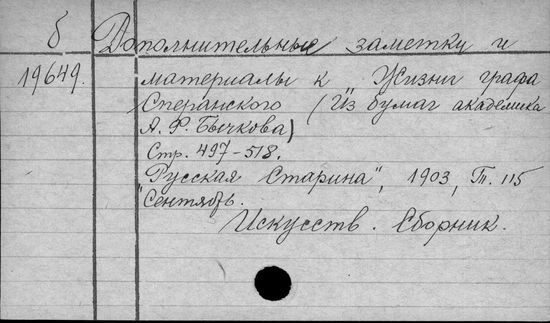 б Дополнительные заметки и
19649. материалы к "Жизни графа
Сперанского" (Из бумаг академика
А. Ф. Бычкова)
Стр. 497-518.
"Русская Старина", 1903, Т. 115
Сентябрь.
Искусств. Сборник.